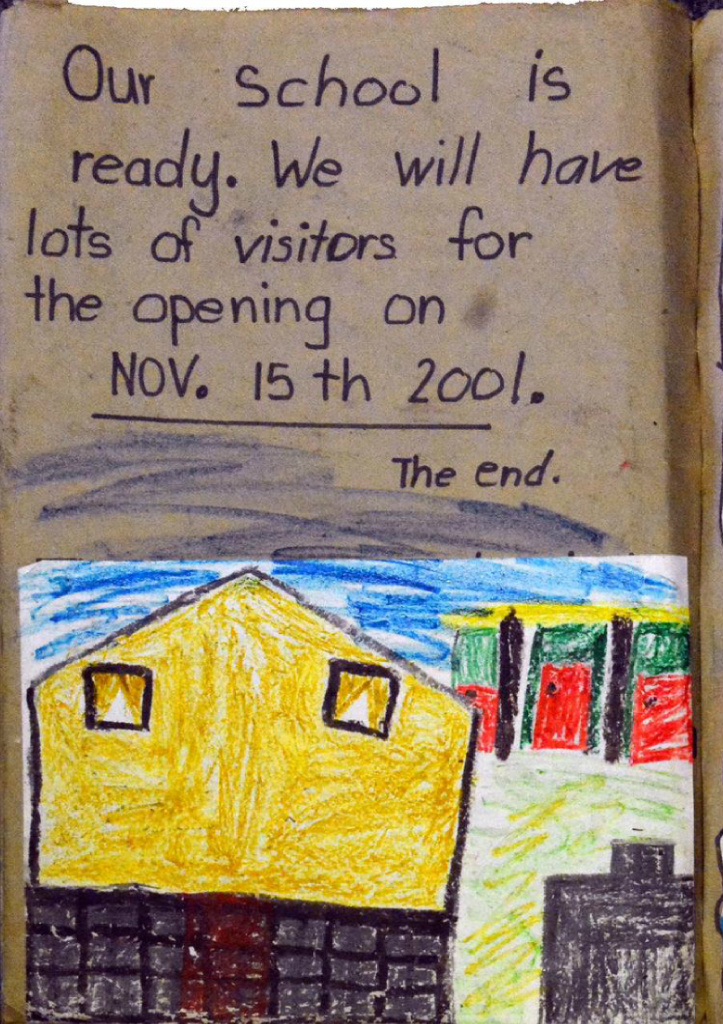 Our school is
ready. We will have
lots of visitors for
the opening on
NOV. 15th 2001.
The end.